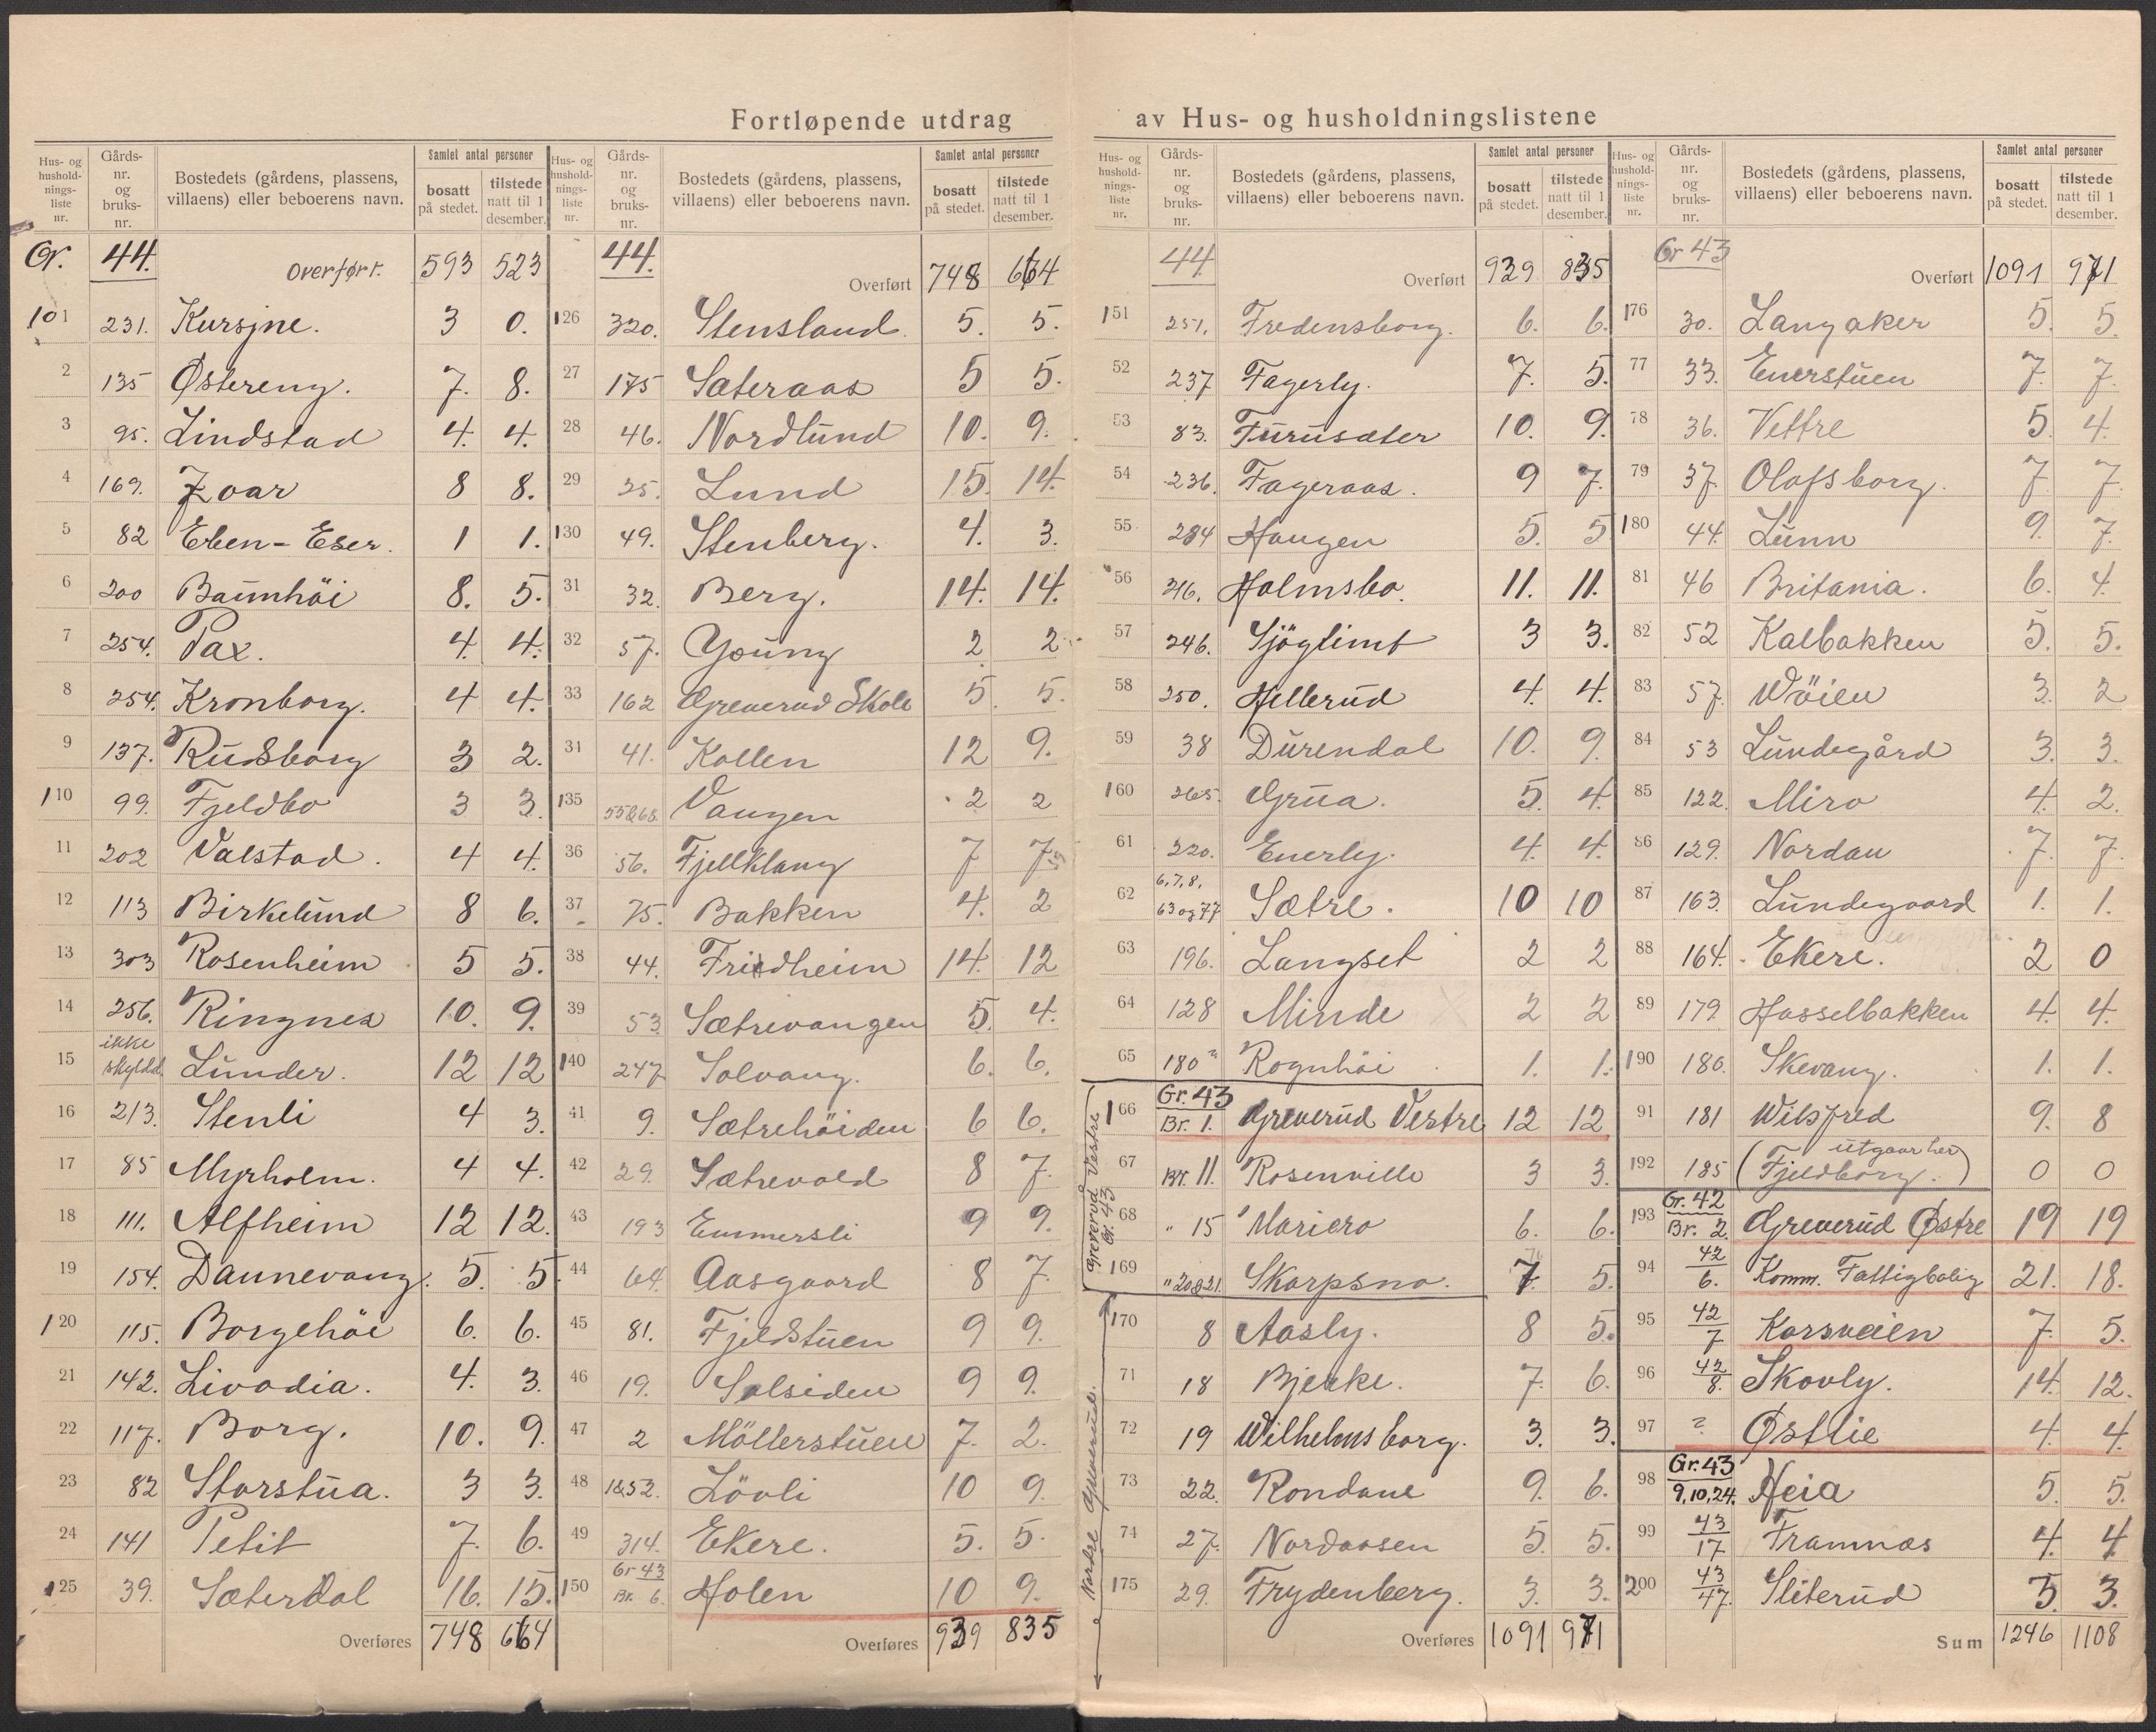 Fortløpende utdrag av Hus- og husholdningslistene
Hus- og hushold-nings-liste nr. Gårds-nr. og bruks-nr. Bostedets (gårdens, plassens, villaens) eller beboerens navn. Samlet antal personer bosatt på stedet. tilstede natt til 1 desember.
Gr. 44. Overført. 593 523
101 231. Kursjne. 3 0.
2 135 Østereng. 7. 8.
3 95. Lindstad 4. 4.
4 169. Zoar 8 8.
5 82 Eben-Eser. 1 1.
6 200 Baumhöi 8. 5.
7 254. Pax. 4. 4.
8 254. Kronborg. 4 4.
9 137. Rudsborg 3 2.
110 99. Fjeldbo 3 3.
11 202 Valstad. 4 4.
12 113 Birkelund 8 6.
13 303 Rosenheim 5 5.
14 256. Ringnes 10. 9.
15 ikke skyldd. Lunder. 12 12
16 213. Stenli 4 3.
17 85 Myrholm. 4 4.
18 111. Alfheim 12 12.
19 154. Dannevang. 5. 5.
120 115. Borgehöi 6. 6.
21 142. Livadia. 4. 3.
22 117. Borg. 10. 9.
23 82 Storstua. 3 3.
24 141 Petit 7. 6.
125 39. Sæterdal 16. 15.
Overføres 748 664
Hus- og hushold-nings-liste nr. Gårds-nr. og bruks-nr. Bostedets (gårdens, plassens, villaens) eller beboerens navn. Samlet antal personer bosatt på stedet. tilstede natt til 1 desember.
44. Overført 748 664
126 320. Stensland. 5. 5.
27 175 Sæteraas 5 5.
28 46. Nordlund 10. 9.
29 25. Lund 15. 14.
130 49. Stenberg. 4. 3.
31 32. Berg. 14. 14.
32 57. Young 2 2
33 162 Greverud Skole 5. 5.
34 41. Kollen 12 9.
135 55&68. Vangen 2 2
36 56. Fjellklang 7 7.
37 75. Bakken 4. 2
38 44. Fridheim 14. 12
39 53 Sætrevangen 5. 4.
140 247 Solvang. 6. 6.
41 9. Sætrehöiden 6 6.
42 29. Sætrevold 8 7.
43 193 Emmersli 9 9.
44 64. Aasgaard 8 7.
45 81. Fjeldstuen 9 9.
46 19. Solsiden 9 9.
47 2 Möllerstuen 7. 2.
48 1&52. Lövli 10 9.
49 314. Ekere. 5. 5.
150 Gr 43 Br. 6. Holen 10 9.
Overføres 939 835
Hus- og hushold-nings-liste nr. Gårds-nr. og bruks-nr. Bostedets (gårdens, plassens, villaens) eller beboerens navn. Samlet antal personer bosatt på stedet. tilstede natt til 1 desember.
44 Overført 939 835
151 251. Fredensborg. 6. 6.
52 237 Fagerly. 7. 5.
53 83. Furusæter 10. 9.
54 236. Fageraas. 9 7.
55 284 Haugen 5. 5
56 216. Holmsbo. 11. 11.
57 246. Sjöglimt 3 3.
58 250. Hellerud 4. 4.
59 38 Durendal 10. 9.
160 265. Grua. 5. 4.
61 220. Enerly. 4. 4.
62 6, 7, 8, 63 og 77 Sætre. 10 10
63 196. Langset 2 2
64 128 Minde 2 2
65 180 Rognhöi 1. 1.
Greverud Vestre Gr. 43
166 Gr. 43 Br. 1. Greverud Vestre 12 12
67 Br. 11. Rosenville 3 3.
68 " 15 Mariero 6. 6.
169 " 20&21. Skarpsno. 7 5.
170 8 Aasly. 8 5.
71 18 Bjerke. 7. 6.
72 19 Wilhelmsborg. 3. 3.
73 22. Rondane 9. 6.
74 27. Nordaasen 5. 5.
175 29. Frydenberg. 3. 3.
Overføres 1091 971
Hus- og hushold-nings-liste nr. Gårds-nr. og bruks-nr. Bostedets (gårdens, plassens, villaens) eller beboerens navn. Samlet antal personer bosatt på stedet. tilstede natt til 1 desember.
Gr 43 Overført 1091 971
176 30. Langaker 5. 5.
77 33. Enerstuen 7. 7.
78 36. Vettre 5. 4.
79 37 Olafsborg. 7. 7.
180 44. Lunn 9. 7.
81 46 Britania. 6. 4.
82 52 Kalbakken 5. 5.
83 57. Wöien 3. 2
84 53 Lundegård 3. 3.
85 122. Miro 4. 2.
86 129. Nordan 7. 7.
87 163. Lundegaard 1. 1.
88 164. Ekere. 2 0
89 179. Hasselbakken 4. 4.
190 180. Skevang. 1. 1.
91 181 Wilsfred 9. 8
192 185 (Fjeldborg. utgaar her) 0 0
193 Gr. 42 Br. 2. Greverud Østre 19 19
94 42/6. Komm. Fattigbolig 21. 18.
95 42/7 Korsveien 7. 5.
96 42/8. Skovly. 14. 12.
97 ? Østlie 4. 4.
98 Gr. 43 9, 10, 24. Heia 5. 5.
99 43/17 Framnæs 4. 4
200 43/47. Sliterud 5. 3.
Sum 1246 1108